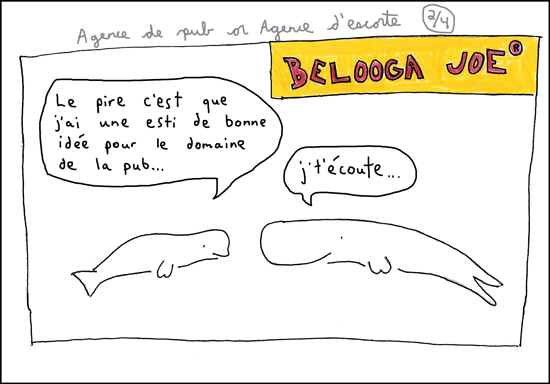 Agence de pub or Agence d'escorte 2/4
BELOOGA JOE ®
Le pire c'est que
j'ai une esti de bonne
idée pour le domaine
de la pub...
j't'écoute...